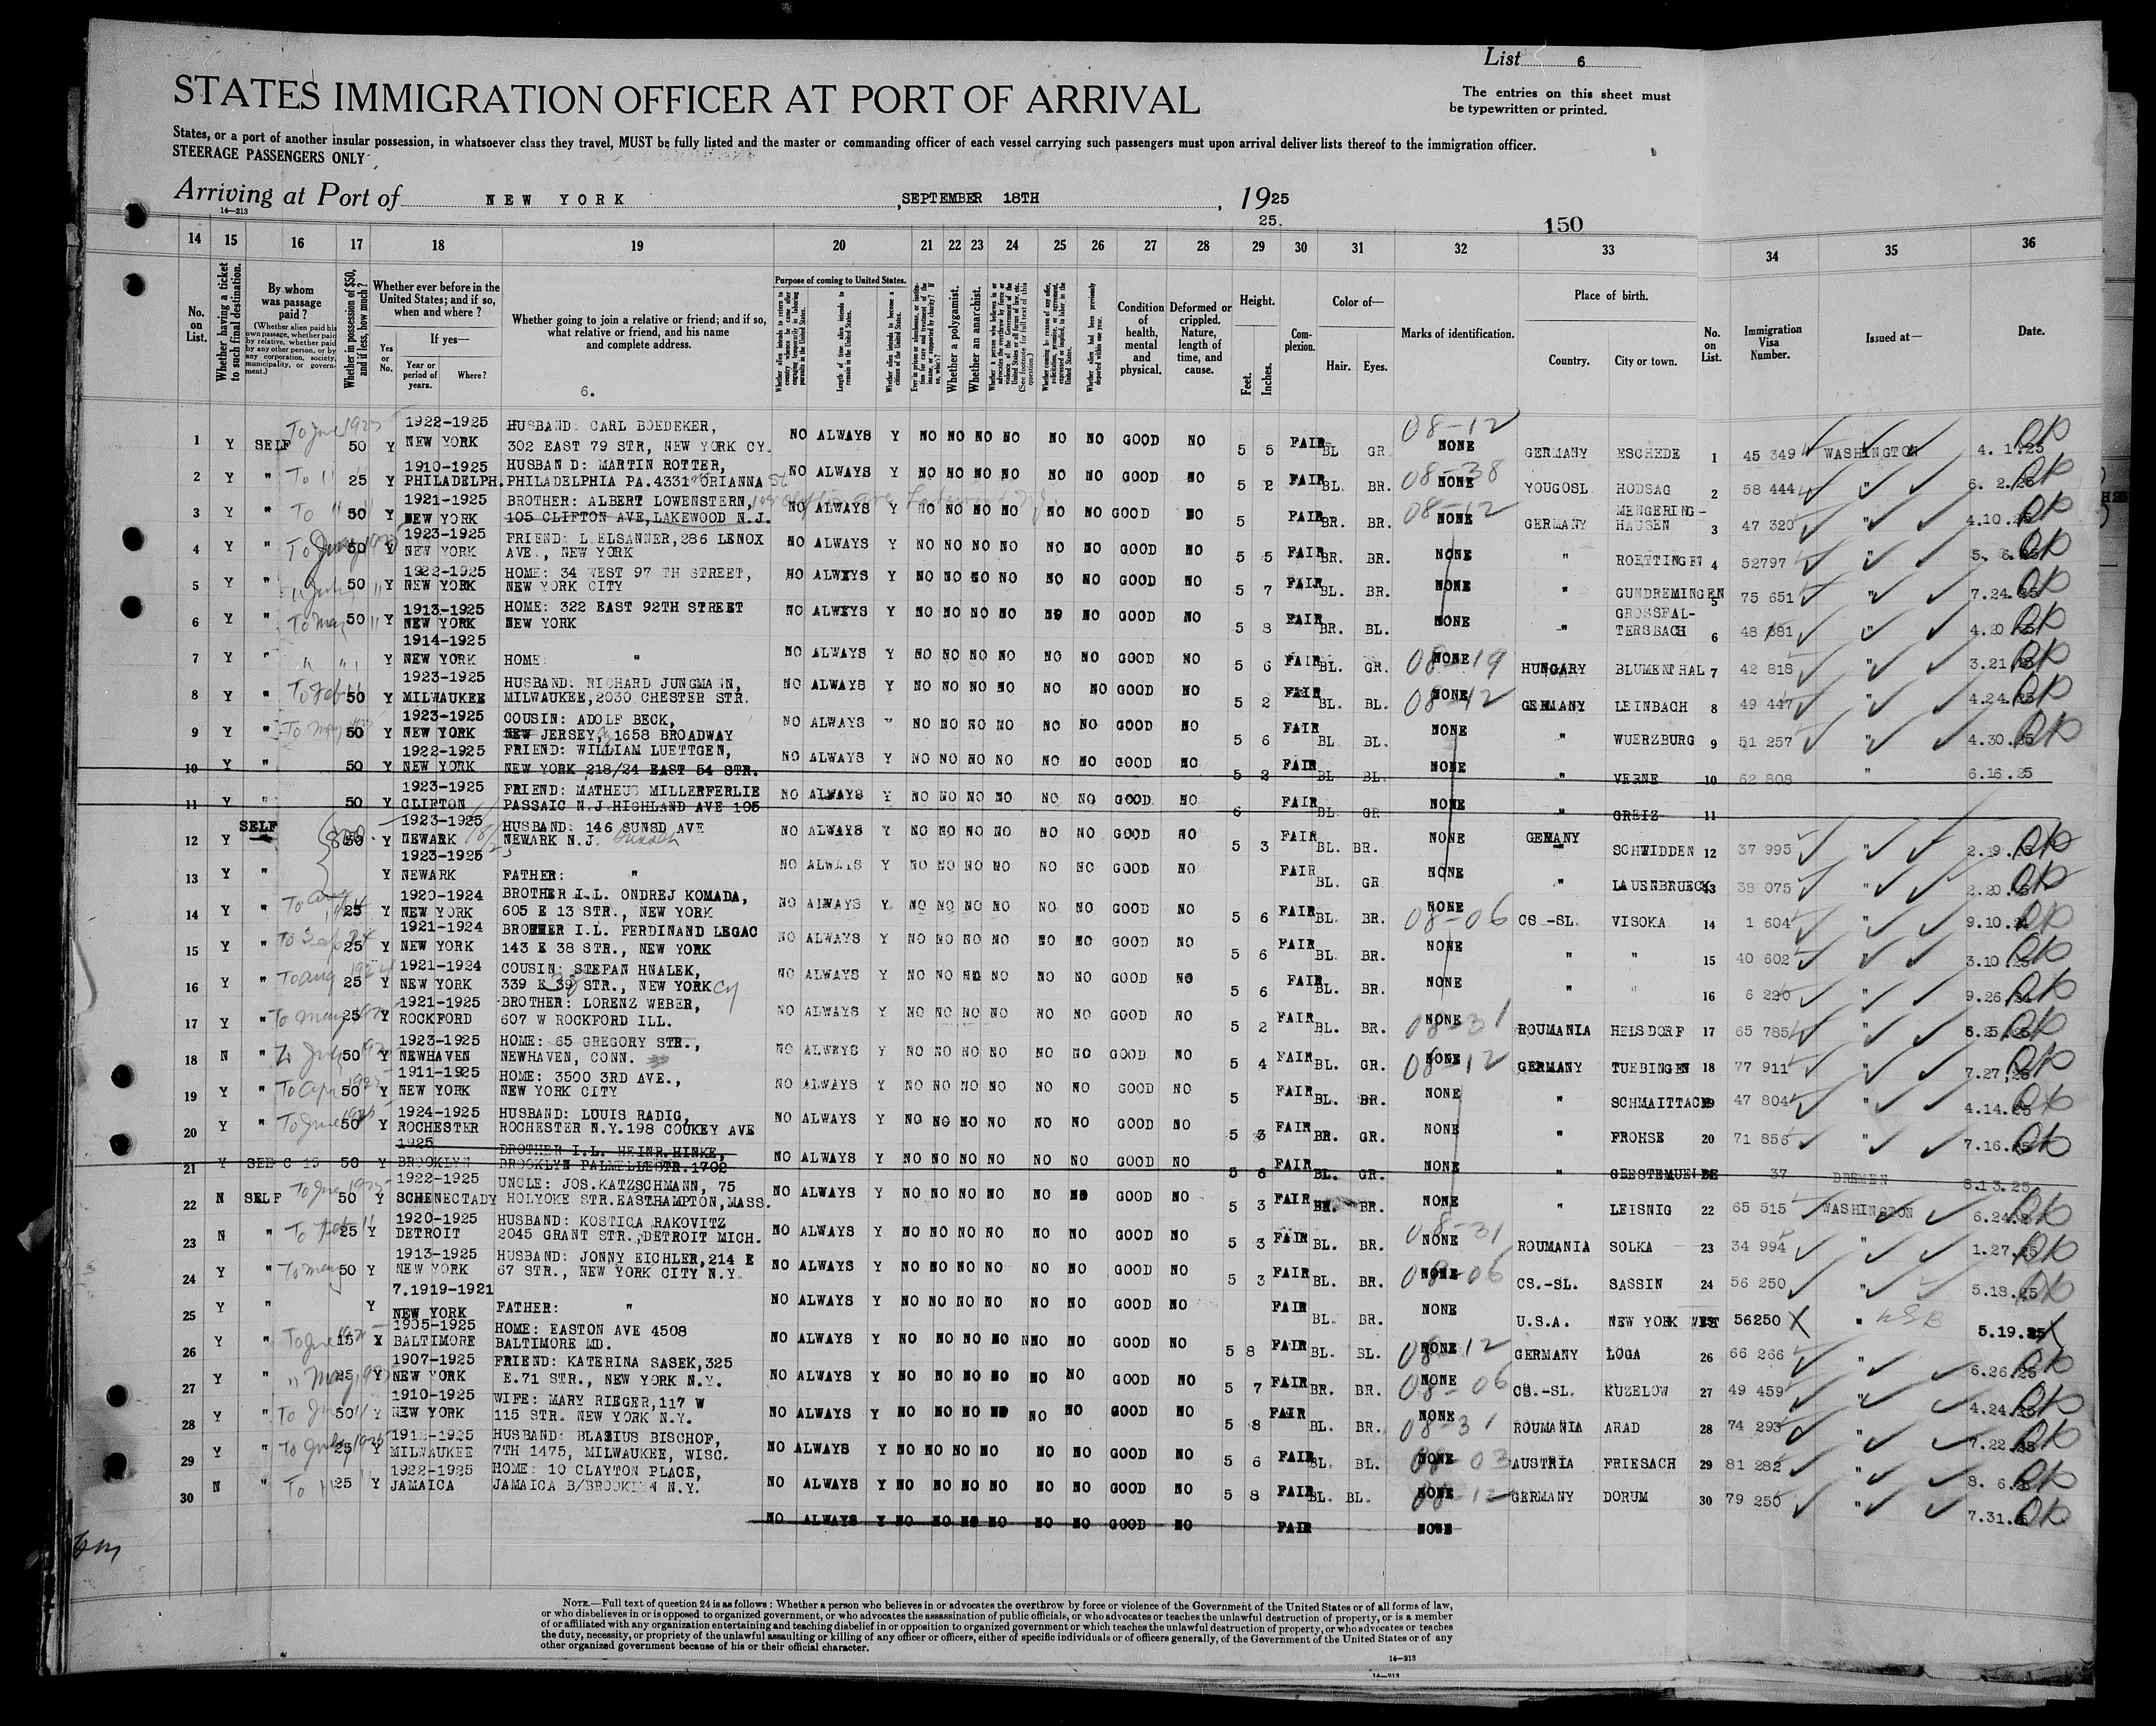 List 6
STATES IMMIGRATION OFFICER AT PORT OF ARRIVAL
The entries on this sheet must
be typewritten or printed.
States, or a port of another insular possession, in whatsoever class they travel, MUST be fully listed and the master or commanding officer of each vessel carrying such passengers must upon arrival deliver lists thereof to the immigration officer.
STEERAGE PASSENGERS ONLY
Arriving at Port of NEW YORK , SEPTEMBER 18TH , 1925
14—213
25.
150
14 15 16 17 18 19 20 21 22 23 24 25 26 27 28 29 30 31 32 33 34 35 36
No. on List.
Whether having a ticket to such final destination.
By whom was passage paid?
(Whether alien paid his own passage, whether paid by relative, whether paid by any other person, or by any corporation, society, municipality, or government.)
Whether in possession of $50, and if less, how much?
Whether ever before in the United States; and if so, when and where?
If yes—
Yes or No.
Year or period of years.
Where?
Whether going to join a relative or friend; and if so, what relative or friend, and his name and complete address.
6.
Purpose of coming to United States.
Length of time alien intends to remain in the United States.
Whether alien intends to become a citizen of the United States.
Whether a polygamist.
Whether an anarchist.
Condition of health, mental and physical.
Deformed or crippled. Nature, length of time, and cause.
Height.
Feet. Inches.
Complexion.
Color of—
Hair. Eyes.
Marks of identification.
Place of birth.
Country. City or town.
No. on List.
Immigration Visa Number.
Issued at—
Date.
1 Y SELF To June 1925 50 Y 1922-1925 NEW YORK HUSBAND: CARL BOEDEKER, 302 EAST 79 STR, NEW YORK CY. NO ALWAYS Y NO NO NO NO NO NO GOOD NO 5 5 FAIR BL GR NONE 08-12 GERMANY ESCHEDE 1 45 349 WASHINGTON 4. 1.25 OK
2 Y " To " 25 Y 1910-1925 PHILADELPH. HUSBAND: MARTIN ROTTER, PHILADELPHIA PA. 4331 ORIANNA St NO ALWAYS Y NO NO NO NO NO NO GOOD NO 5 2 FAIR BL. BR. NONE 08-38 YOUGOSL HODSAG 2 58 444 " 6. 2.25 OK
3 Y " To " 50 Y 1921-1925 NEW YORK BROTHER: ALBERT LOWENSTERN, 105 CLIFTON AVE, LAKEWOOD N.J. NO ALWAYS Y NO NO NO NO NO NO GOOD NO 5 FAIR BR. BR. NONE 08-12 GERMANY MENGERING-HAUSEN 3 47 320 " 4.10.25 OK
4 Y " To 50 Y 1923-1925 NEW YORK FRIEND: L.ELSANNER, 286 LENOX AVE., NEW YORK NO ALWAYS Y NO NO NO NO NO NO GOOD NO 5 5 FAIR BR. BR. NONE " ROETTINGEN 4 52797 " 5. 6.25 OK
5 Y " " July " 50 Y 1922-1925 NEW YORK HOME: 34 WEST 97 TH STREET, NEW YORK CITY NO ALWEYS Y NO NO NO NO NO NO GOOD NO 5 7 FAIR BL. BR. NONE " GUNDREMINGEN 5 75 651 " 7.24.25 OK
6 Y " To May " 50 Y 1913-1925 NEW YORK HOME: 322 EAST 92TH STREET NEW YORK NO ALWEYS Y NO NO NO NO NO NO GOOD NO 5 8 FAIR BR. BL. NONE " GROSSFAL-TERSBACH 6 48 881 " 4.20.25 OK
7 Y " " " Y 1914-1925 NEW YORK HOME: " NO ALWAYS Y NO NO NO NO NO NO GOOD NO 5 6 FAIR BL. GR. NONE 08-19 HUNGARY BLUMENTHAL 7 42 818 " 3.21.25 OK
8 Y " To Feb 50 Y 1923-1925 MILWAUKEE HUSBAND: RICHARD JUNGMANN, MILWAUKEE, 2030 CHESTER STR. NO ALWAYS Y NO NO NO NO NO NO GOOD NO 5 2 FAIR BL. BL. NONE 08-12 GERMANY LEINBACH 8 49 447 " 4.24.25 OK
9 Y " To May 50 Y 1923-1925 NEW YORK COUSIN: ADOLF BECK, NEW JERSEY, 1658 BROADWAY NO ALWAYS " NO NO NO NO NO NO GOOD NO 5 6 FAIR BL BL. NONE " WUERZBURG 9 51 257 " 4.30.25 OK
10 Y " 50 Y 1922-1925 NEW YORK FRIEND: WILLIAM LUETTGEN, NEW YORK 218/24 EAST 54 STR. NO ALWAYS Y NO NO NO NO NO NO GOOD NO 5 2 FAIR BL BL. NONE " VERNE 10 62 808 " 6.16.25
11 Y " 50 Y 1923-1925 CLIFTON FRIEND: MATHEUS MILLERFERLIE PASSAIC N.J. HIGHLAND AVE 105 NO ALWAYS Y NO NO NO NO NO NO GOOD NO 6 FAIR BL. GR NONE " GREIZ 11
12 Y SELF 50 Y 1923-1925 NEWARK HUSBAND: 146 SUNSD AVE NEWARK N.J. NO ALWAYS Y NO NO NO NO NO NO GOOD NO 5 3 FAIR BL. BR. NONE GEMANY SCHWIDDEN 12 37 995 " 2.19.25 OK
13 Y " Y 1923-1925 NEWARK FATHER: " NO ALWAYS Y NO NO NO NO NO NO GOOD NO FAIR BL. GR NONE " LAUENBRUECK 13 38 075 " 2.20.25 OK
14 Y " To Aug 25 Y 1920-1924 NEW YORK BROTHER I.L. ONDREJ KOMADA, 605 E 13 STR., NEW YORK NO ALWAYS Y NO NO NO NO NO NO GOOD NO 5 6 FAIR BL. BR. NONE 08-06 CS.-SL. VISOKA 14 1 604 " 9.10.24 OK
15 Y " To Sep 24 25 Y 1921-1924 NEW YORK BROTHER I.L. FERDINAND LEGAC 143 E 38 STR., NEW YORK NO ALWAYS Y NO NO NO NO NO NO GOOD NO 5 6 FAIR BL. BR. NONE " " 15 40 602 " 3.10.25 OK
16 Y " To Aug 1924 25 Y 1921-1924 NEW YORK COUSIN: STEFAN HNALEK, 339 E 39 STR., NEW YORK Cy NO ALWAYS Y NO NO NO NO NO NO GOOD NO 5 6 FAIR BL. BR. NONE " " 16 6 220 " 9.26.24 OK
17 Y " To May 1925 25 Y 1921-1925 ROCKFORD BROTHER: LORENZ WEBER, 607 W ROCKFORD ILL. NO ALWAYS Y NO NO NO NO NO NO GOOD NO 5 2 FAIR BL. BR. NONE 08-31 ROUMANIA HELSDORF 17 65 785 " 6.25.25 OK
18 N " To July 50 Y 1923-1925 NEWHAVEN HOME: 65 GREGORY STR., NEWHAVEN, CONN. NO ALWEYS Y NO NO NO NO NO NO GOOD NO 5 4 FAIR BL. GR. NONE 08-12 GERMANY TUEBINGEN 18 77 911 " 7.27.25 OK
19 Y " To Apr 1925 50 Y 1911-1925 NEW YORK HOME: 3500 3RD AVE., NEW YORK CITY NO ALWAYS Y NO NO NO NO NO NO GOOD NO 5 FAIR BL. BR. NONE " SCHMAITTACH 19 47 804 " 4.14.25 OK
20 Y " To June 1925 50 Y 1924-1925 ROCHESTER HUSBAND: LOUIS RADIG, ROCHESTER N.Y. 198 COUKEY AVE NO ALWAYS Y NO NO NO NO NO NO GOOD NO 5 3 FAIR BR. GR. NONE " FROHSE 20 71 856 " 7.16.25 OK
21 Y SEE C 15 50 Y 1925 BROOKLYN BROTHER I.L. HEINR. HINKE, BROOKLYN PALMELLESTR. 1702 NO ALWAYS Y NO NO NO NO NO NO GOOD NO 5 6 FAIR BL. GR. NONE " GEESTEMUENDE 37 BREMEN 8.13.25
22 N SELF To June 1925 50 Y 1922-1925 SCHENECTADY UNCLE: JOS. KATZSCHMANN, 75 HOLYOKE STR. EASTHAMPTON, MASS. NO ALWAYS Y NO NO NO NO NO NO GOOD NO 5 3 FAIR BR. BR. NONE " LEISNIG 22 65 515 WASHINGTON 6.24.25 OK
23 N " To Feb 25 Y 1920-1925 DETROIT HUSBAND: KOSTICA RAKOVITZ 2045 GRANT STR., DETROIT MICH. NO ALWAYS Y NO NO NO NO NO NO GOOD NO 5 3 FAIR BL. BR. NONE 08-31 ROUMANIA SOLKA 23 34 994 " 1.27.25 OK
24 Y " To May 50 Y 1913-1925 NEW YORK HUSBAND: JONNY EICHLER, 214 E 67 STR., NEW YORK CITY N.Y. NO ALWAYS Y NO NO NO NO NO NO GOOD NO 5 3 FAIR BL. BR. NONE 08-06 CS.-SL. SASSIN 24 56 250 " 5.18.25 OK
25 Y " Y 7.1919-1921 NEW YORK FATHER: " NO ALWAYS Y NO NO NO NO NO NO GOOD NO FAIR BL. BR. NONE U.S.A. NEW YORK WEST 56250 X " USB 5.19.25 X
26 Y " To June 1925 15 Y 1905-1925 BALTIMORE HOME: EASTON AVE 4508 BALTIMORE MD. NO ALWAYS Y NO NO NO NO NNO NO GOOD NO 5 8 FAIR BL. SL. NONE 08-12 GERMANY LOGA 26 66 266 " 6.26.25 OK
27 Y " " May 1925 25 Y 1907-1925 NEW YORK FRIEND: KATERINA SASEK, 325 E.71 STR., NEW YORK N.Y. NO ALWAYS Y NO NO NO NO NO NO GOOD NO 5 7 FAIR BR. BR. NONE 08-06 CS.-SL. KUZELOW 27 49 459 " 4.24.25 OK
28 Y " To 50 Y 1910-1925 NEW YORK WIFE: MARY RIEGER, 117 W 115 STR. NEW YORK N.Y. NO ALWAYS Y NO NO NO NO NO NO GOOD NO 5 8 FAIR BL. BR. NONE 08-31 ROUMANIA ARAD 28 74 293 " 7.22.25 OK
29 Y " To July 1925 25 Y 1912-1925 MILWAUKEE HUSBAND: BLASIUS BISCHOF, 7TH 1475, MILWAUKEE, WISC. NO ALWAYS Y NO NO NO NO NO NO GOOD NO 5 6 FAIR BL. BL. NONE 08-03 AUSTRIA FRIESACH 29 81 282 " 8. 6.25 OK
30 N " To " 25 Y 1922-1925 JAMAICA HOME: 10 CLAYTON PLACE, JAMAICA B/BROOKLYN N.Y. NO ALWAYS Y NO NO NO NO NO NO GOOD NO 5 8 FAIR BL. BL. NONE 08-12 GERMANY DORUM 30 79 250 " 7.31.25 OK
NO ALWAYS Y NO NO NO NO NO NO GOOD NO FAIR NONE
NOTE.—Full text of question 24 is as follows: Whether a person who believes in or advocates the overthrow by force or violence of the Government of the United States or of all forms of law,
or who disbelieves in or is opposed to organized government, or who advocates the assassination of public officials, or who advocates or teaches the unlawful destruction of property, or is a member
of or affiliated with any organization entertaining and teaching disbelief in or opposition to organized government or which teaches the unlawful destruction of property, or who advocates or teaches
the duty, necessity, or propriety of the unlawful assaulting or killing of any officer or officers, either of specific individuals or of officers generally, of the Government of the United States or of any
other organized government because of his or their official character.
14—213
14—213